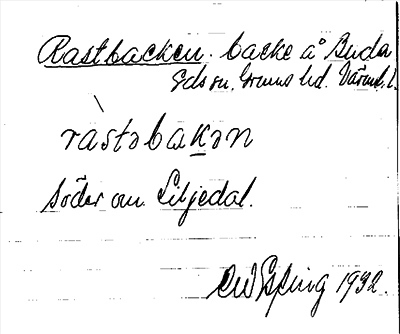 Rastbacken. backe å Buda
Eds sn. Grums hd. Värml. l.
rastəbakən
söder om Liljedal.
1932.